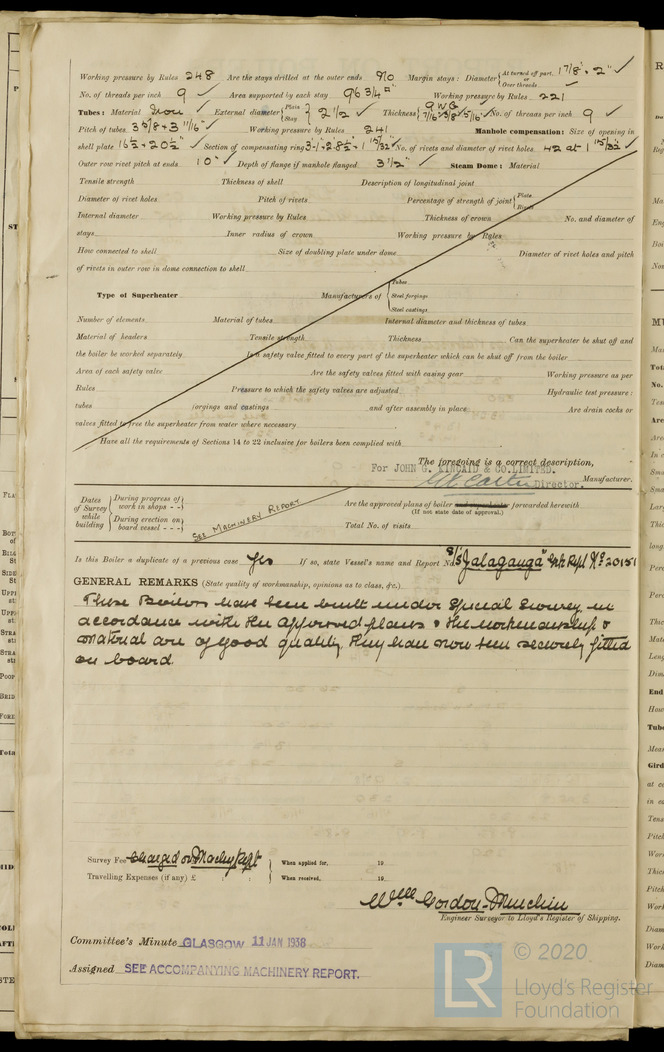 Working pressure by Rules 248 Are the stays drilled at the outer ends No Margin stays: Diameter { At turned off part, or Over threads 1 7/8" + 2" ✓
No. of threads per inch 9 ✓ Area supported by each stay 96 3/4 □" Working pressure by Rules 221
Tubes: Material Iron ✓ External diameter { Plain Stay } 2 1/2 ✓ Thickness { 9 WG 7/16" 3/8" 5/16" ✓ No. of threads per inch 9 ✓
Pitch of tubes 3 5/8 + 3 11/16" ✓ Working pressure by Rules 241 Manhole compensation: Size of opening in
shell plate 16 1/2 + 20 1/2" ✓ Section of compensating ring No. of rivets and diameter of rivet holes 42 at 1 15/32 ✓
Outer row rivet pitch at ends 10" ✓ Depth of flange if manhole flanged 3 1/2" ✓ Steam Dome: Material
Tensile strength Thickness of shell Description of longitudinal joint
Diameter of rivet holes Pitch of rivets Percentage of strength of joint { Plate Rivets
Internal diameter Working pressure by Rules Thickness of crown No. and diameter of
stays Inner radius of crown Working pressure by Rules
How connected to shell Size of doubling plate under dome Diameter of rivet holes and pitch
of rivets in outer row in dome connection to shell
Type of Superheater Manufacturers of { Tubes Steel forgings Steel castings
Number of elements Material of tubes Internal diameter and thickness of tubes
Material of headers Tensile strength Thickness Can the superheater be shut off and
the boiler be worked separately Is a safety valve fitted to every part of the superheater which can be shut off from the boiler
Area of each safety valve Are the safety valves fitted with easing gear Working pressure as per
Rules Pressure to which the safety valves are adjusted Hydraulic test pressure:
tubes forgings and castings and after assembly in place Are drain cocks or
valves fitted to free the superheater from water where necessary
Have all the requirements of Sections 14 to 22 inclusive for boilers been complied with
The foregoing is a correct description,
For JOHN G. KINCAID & CO. LIMITED.
Director. Manufacturer.
Dates of Survey while building { During progress of work in shops - - } { During erection on board vessel - - - } SEE MACHINERY REPORT
Are the approved plans of boiler and superheater forwarded herewith
(If not state date of approval.)
Total No. of visits
Is this Boiler a duplicate of a previous case Yes If so, state Vessel's name and Report No. S/S "Jalaganga" Grk Rpt No 20151
GENERAL REMARKS (State quality of workmanship, opinions as to class, &c.)
These Boilers have been built under Special Survey in
accordance with the approved plans & the workmanship &
material are of good quality, they have now been securely fitted
on board
Survey Fee Charged on Machy Rept } When applied for, 19
Travelling Expenses (if any) £ : : } When received, 19
Wm Gordon-Munchin
Engineer Surveyor to Lloyd's Register of Shipping.
Committee's Minute GLASGOW 11 JAN 1938
Assigned SEE ACCOMPANYING MACHINERY REPORT.
LR © 2020
Lloyd's Register
Foundation